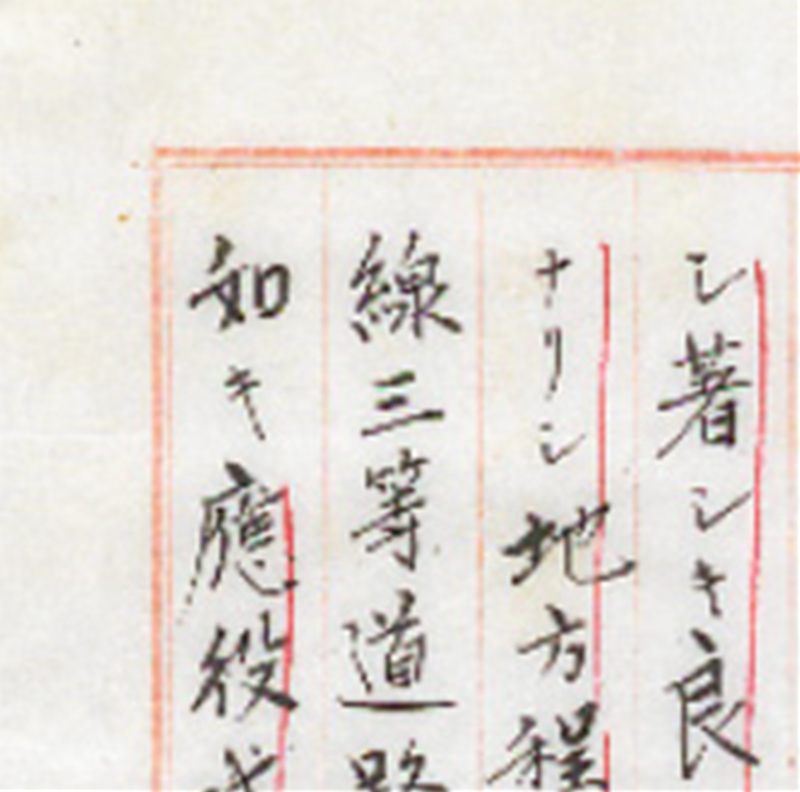 シ著シキ良
ナリシ地方程
線三等道路
如キ應役